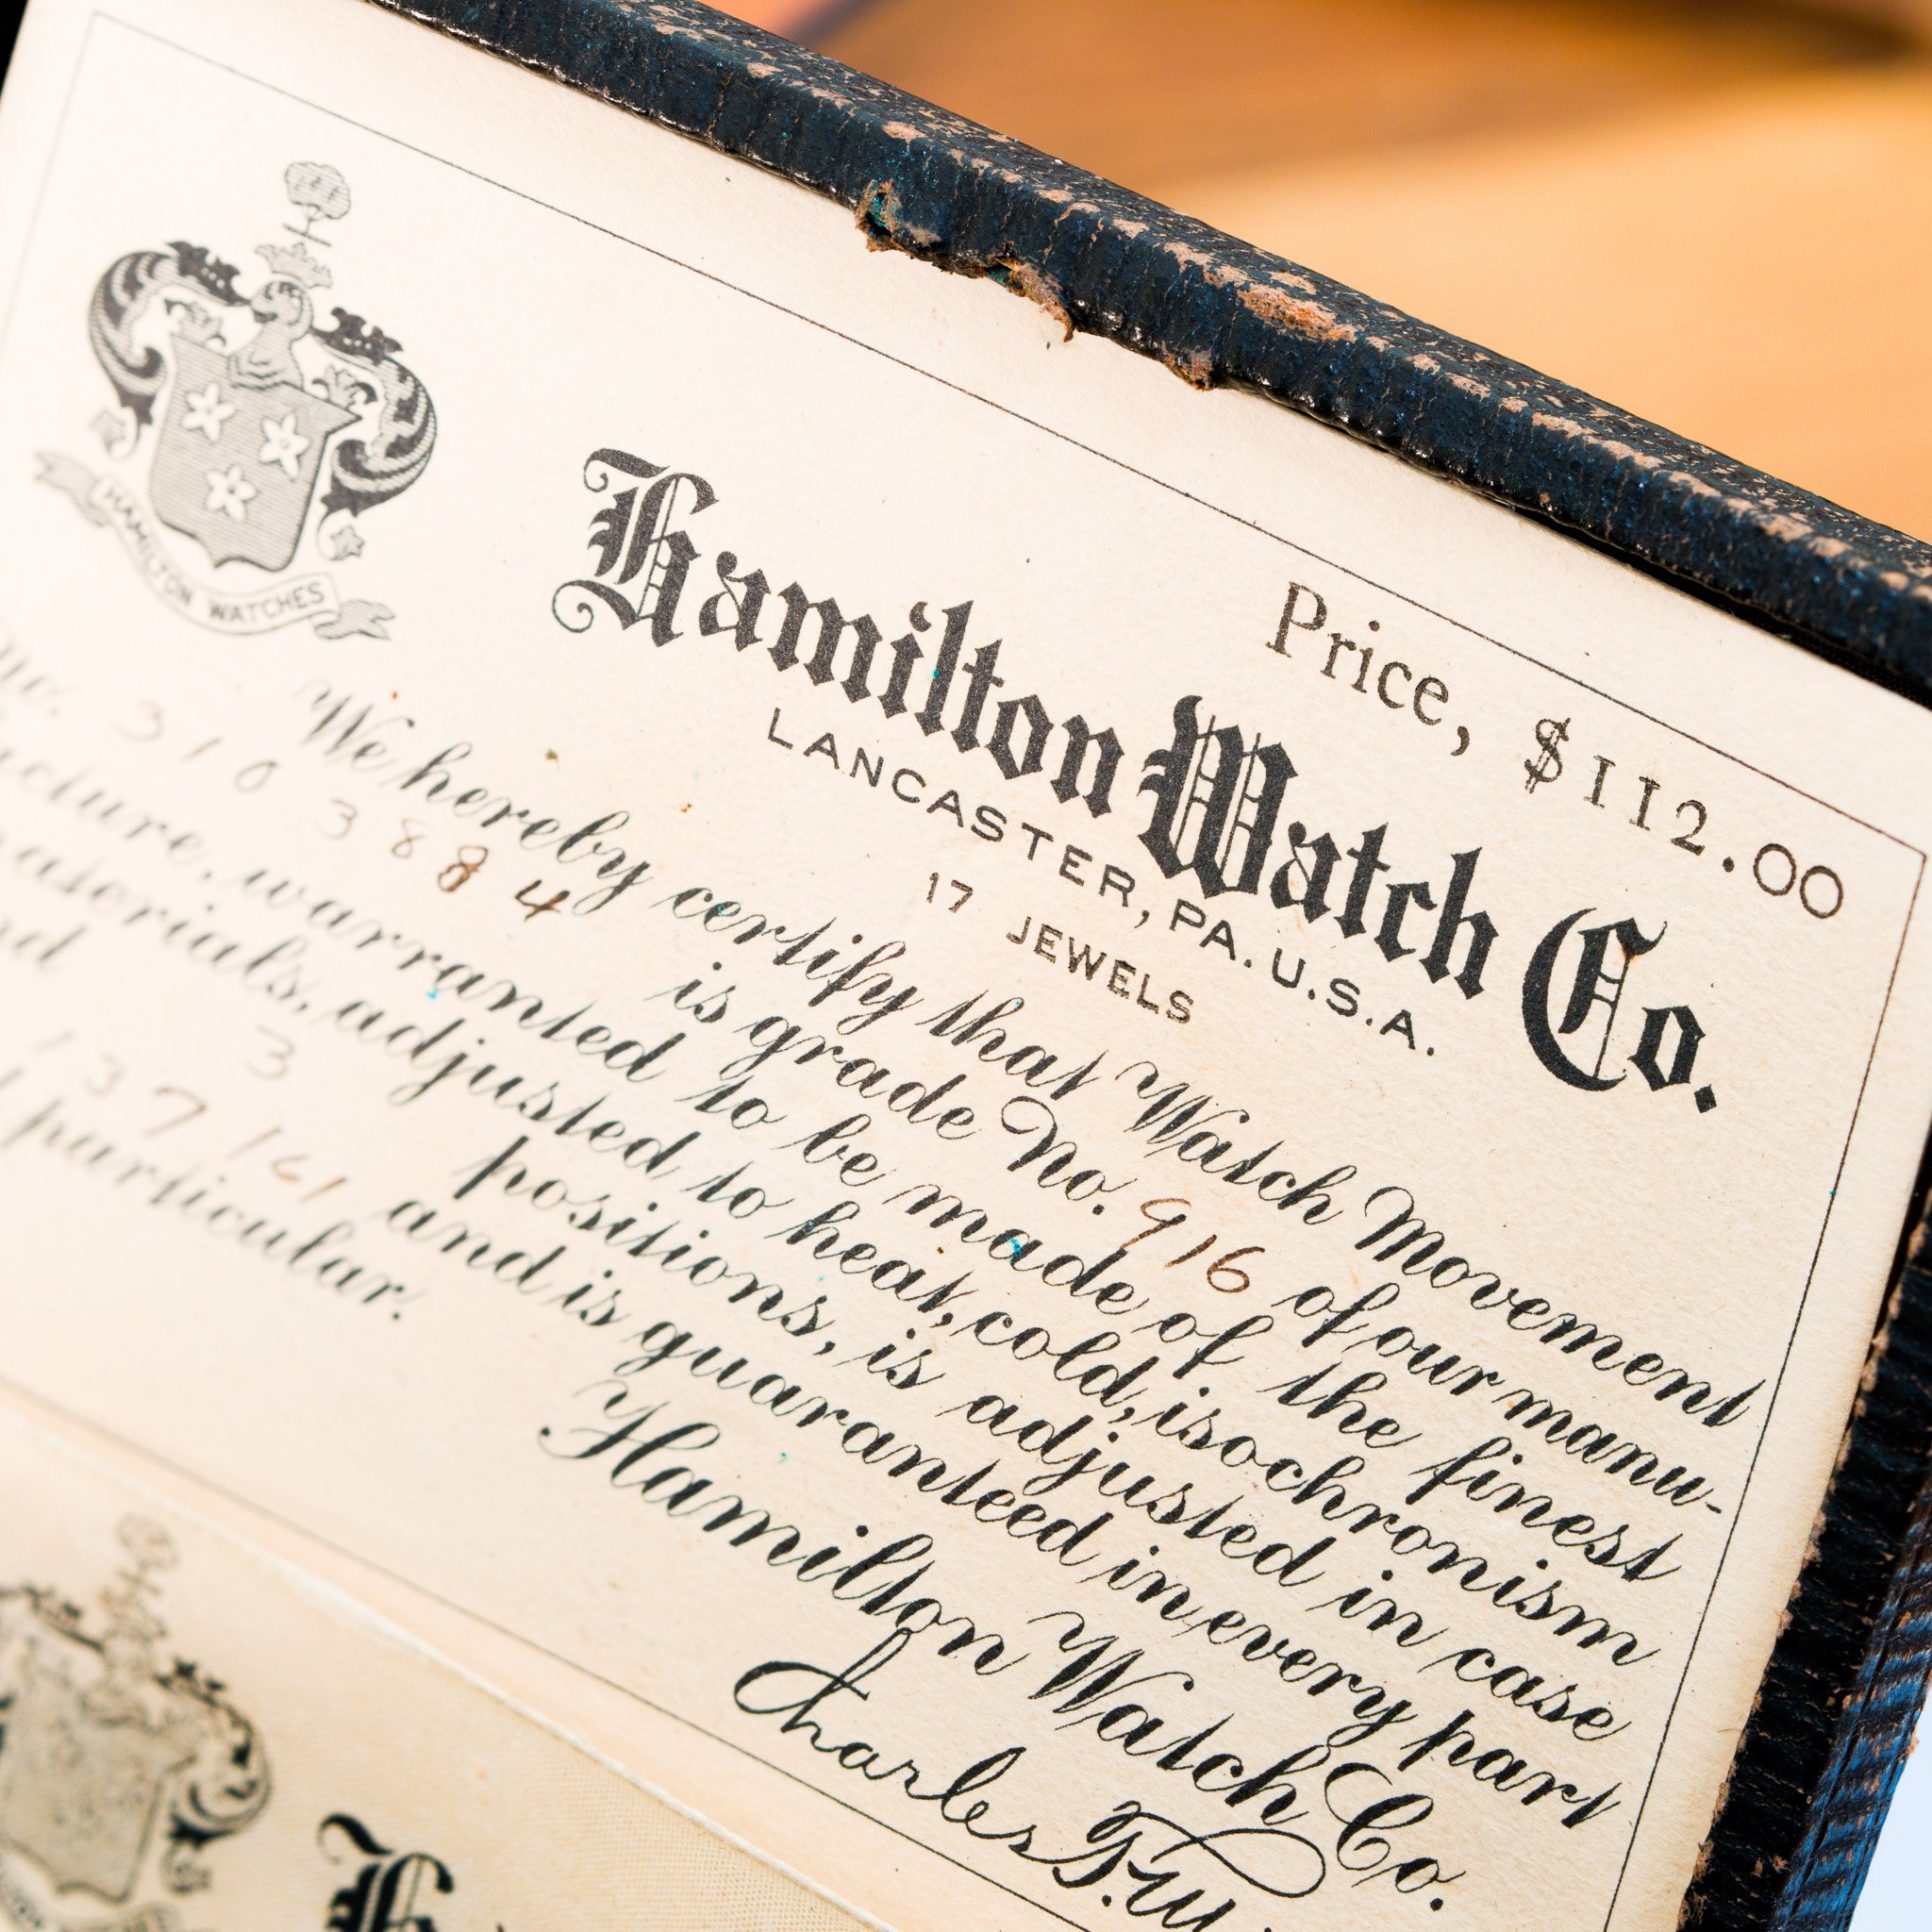 Price, $112.00
Hamilton Watch Co.
HAMILTON WATCHES
LANCASTER, PA. U.S.A.
17 JEWELS
We hereby certify that Watch Movement
No. 3103884 is grade No. 916 of our manu-
warranted to be made of the finest
adjusted to heat, cold, isochronism
3 positions, is adjusted in case
137161 and is guaranteed in every part
particular.
Hamilton Watch Co.
Charles F.